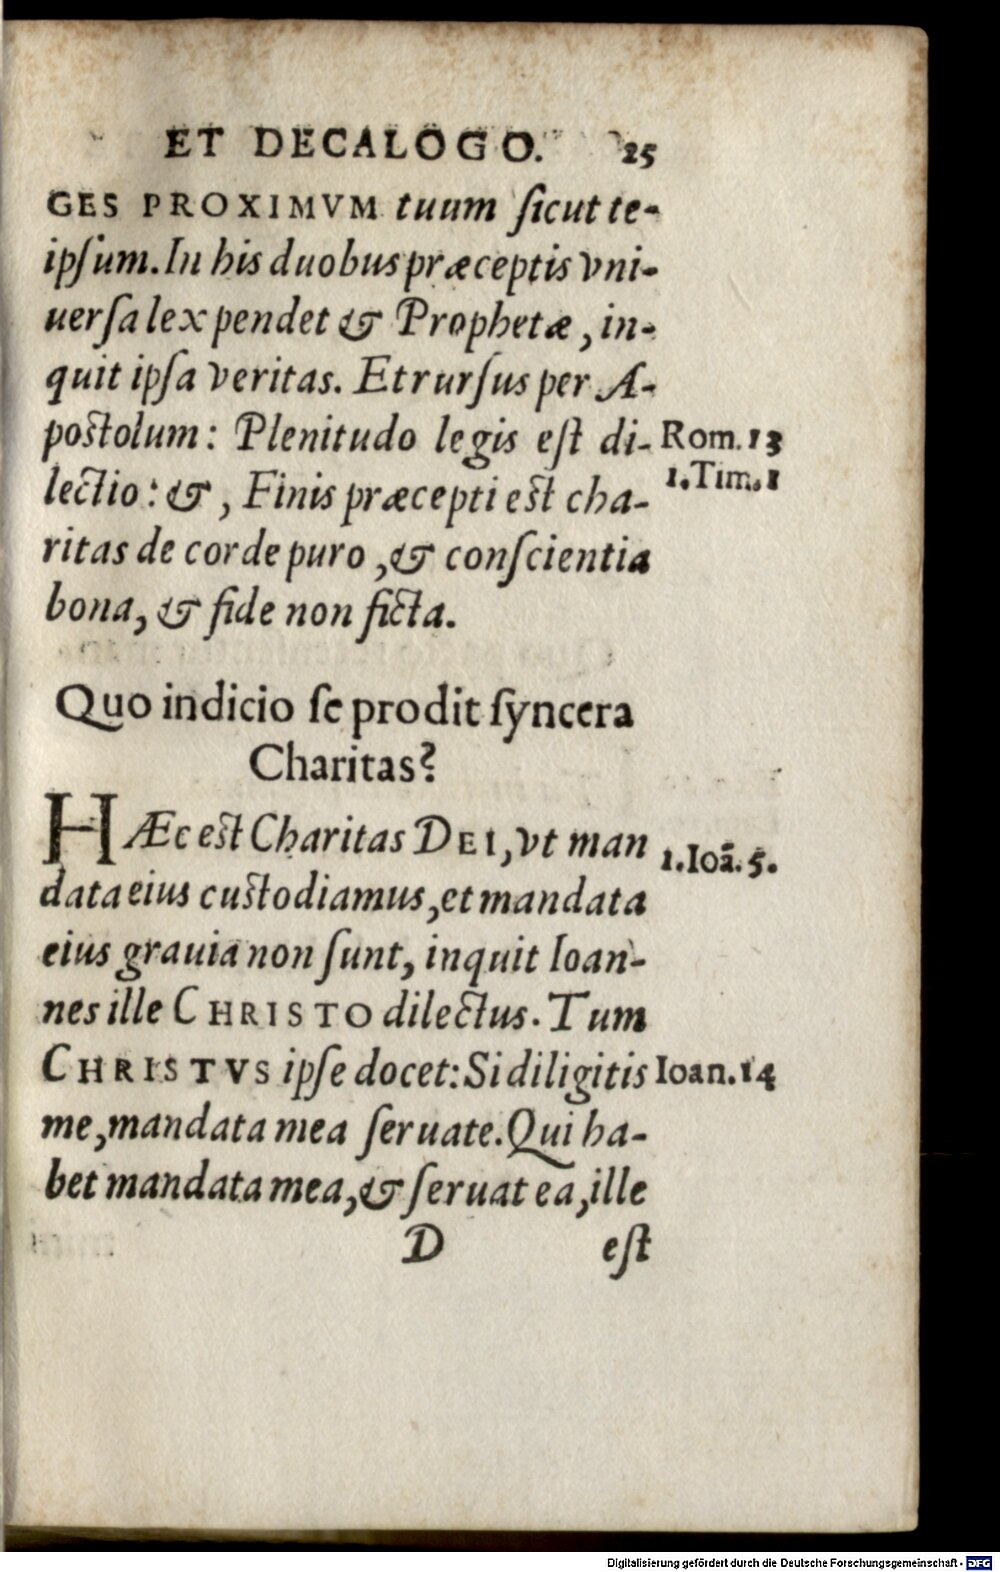 ET DECALOGO. 25
GES PROXIMVM tuum ſicut te-
ipſum. In his duobus præceptis vni-
uerſa lex pendet & Prophetæ, in-
quit ipſa veritas. Et rurſus per A-
poſtolum: Plenitudo legis eſt di- Rom. 13
lectio: &, Finis præcepti eſt cha- 1. Tim. 1
ritas de corde puro, & conſcientia
bona, & fide non ficta.
Quo indicio ſe prodit ſyncera
Charitas?
HÆc eſt Charitas DEI, vt man 1. Ioã. 5.
data eius cuſtodiamus, et mandata
eius grauia non ſunt, inquit Ioan-
nes ille CHRISTO dilectus. Tum
CHRISTVS ipſe docet: Si diligitis Ioan. 14
me, mandata mea ſeruate. Qui ha-
bet mandata mea, & ſeruat ea, ille
D eſt
Digitalisierung gefördert durch die Deutsche Forschungsgemeinschaft - DFG